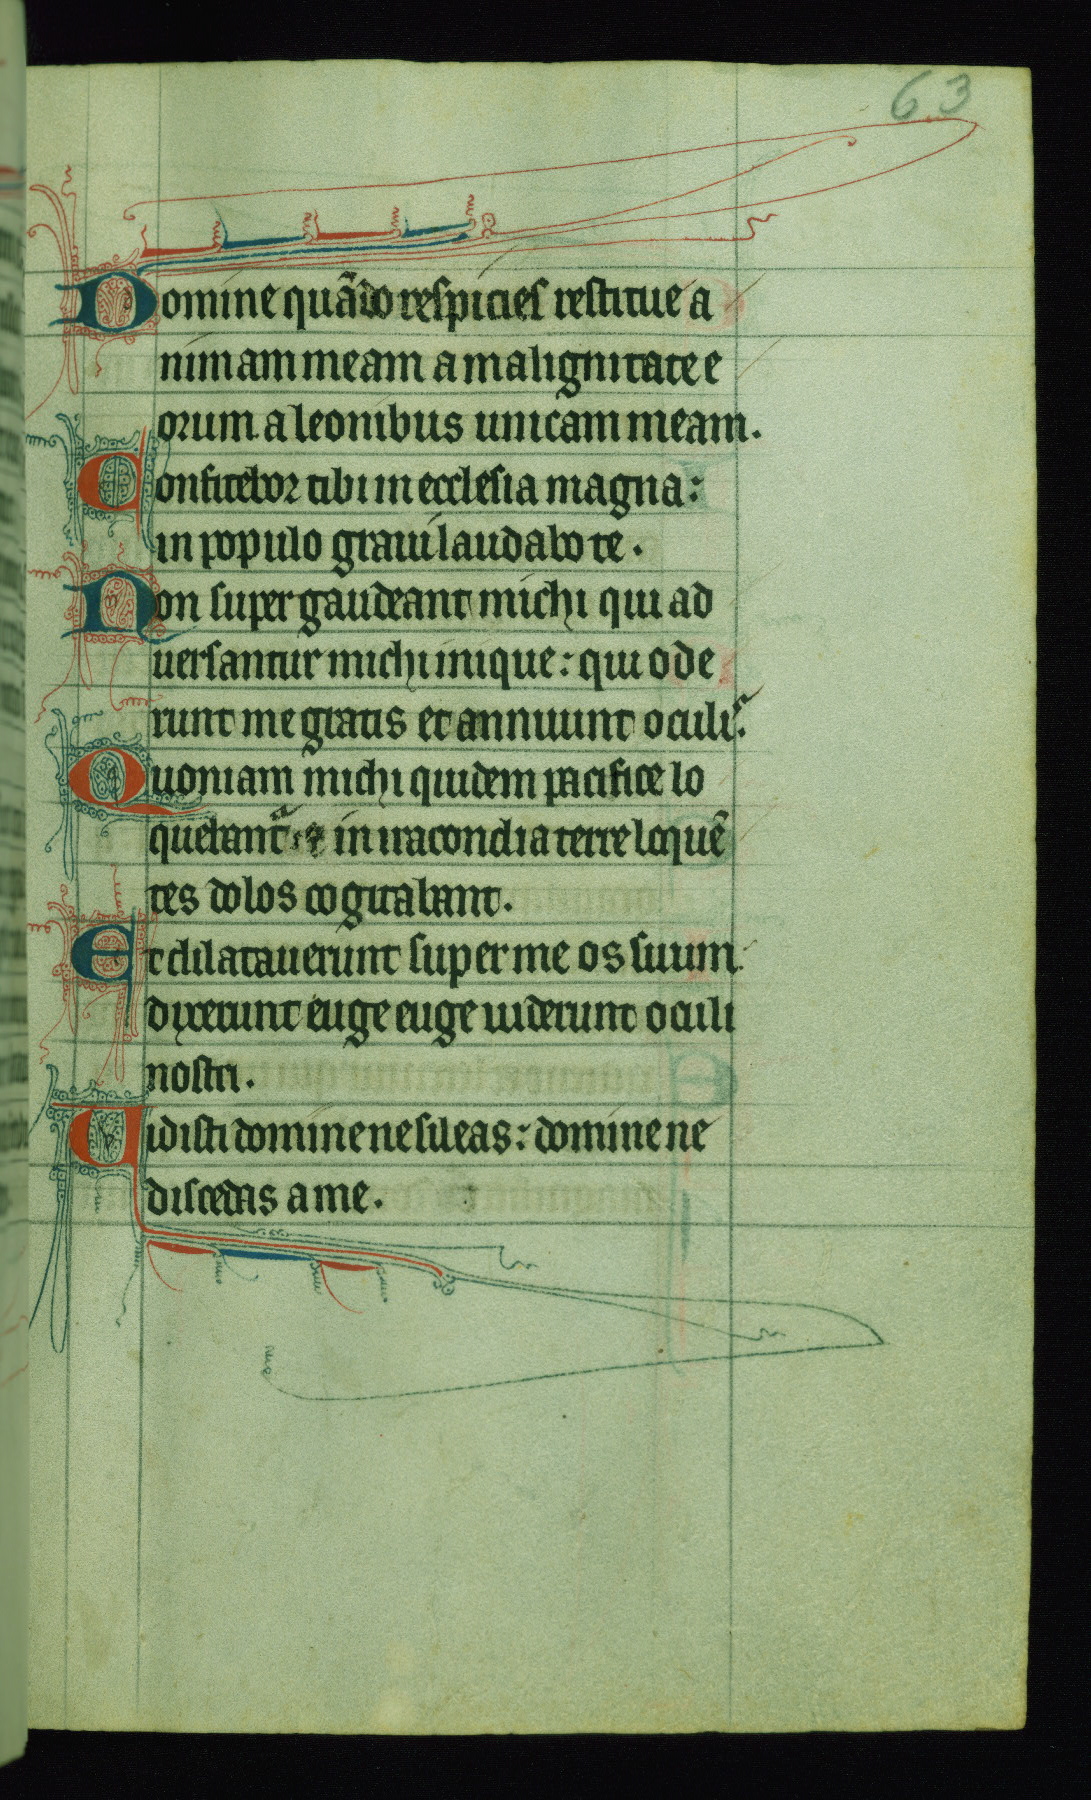 63
Domine quãdo respicies restitue a
nimam meam a malignitate e
orum a leonibus unicam meam.
Confitebor tibi in ecclesia magna:
in populo graui laudabo te.
Non super gaudeant michi qui ad
uersantur michi inique: qui ode
runt me gratis et annuunt oculi.
Quoniam michi quidem pacifice lo
quebant in iracondia terre loquẽ
tes dolos cogitabant.
Et dilatauerunt super me os suum
dixerunt euge euge uiderunt oculi
nostri.
Uidisti domine ne sileas: domine ne
discedas a me.